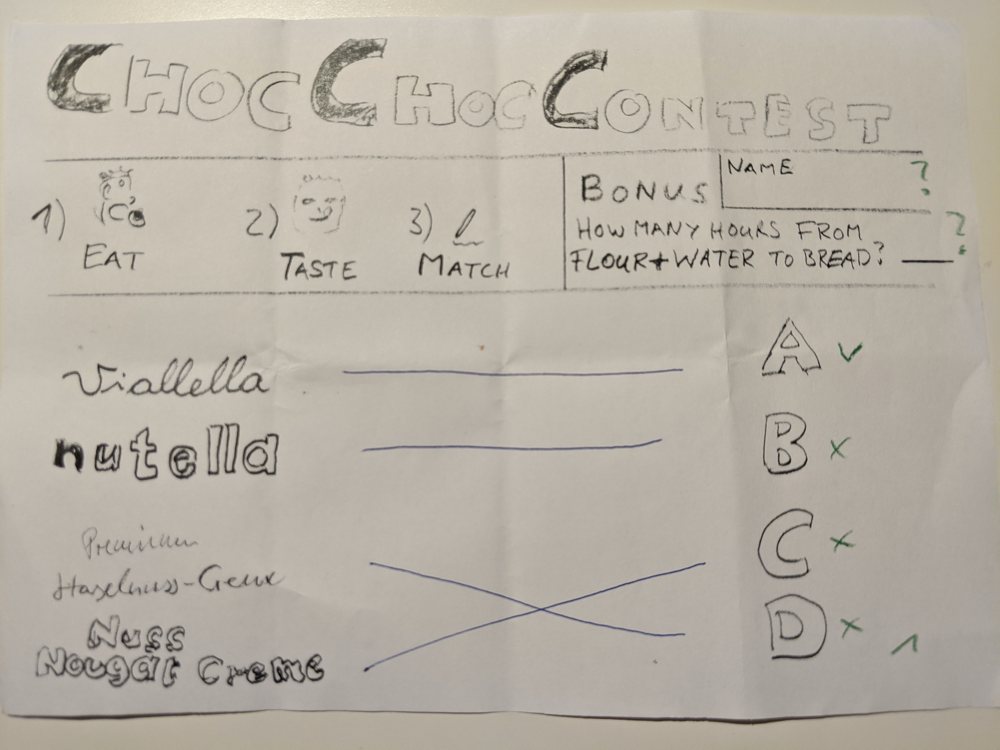 CHOC CHOC CONTEST
1) EAT
2) TASTE
3) MATCH
BONUS
NAME ?
HOW MANY HOURS FROM
FLOUR + WATER TO BREAD? ?
Viallella
nutella
Premium
Haselnuss-Creme
Nuss
Nougat Creme
A ✓
B ×
C ×
D ×
1